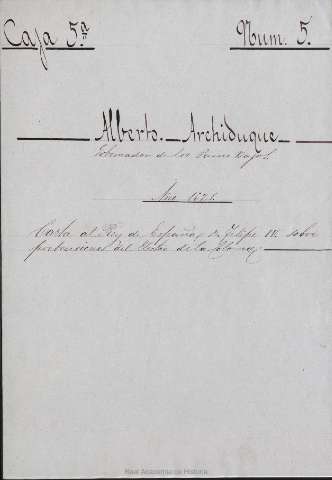 Caja 5ª Num. 5.
Alberto. Archiduque
Gobernador de los Paises Bajos.
Año
Carta al Rey de España, Dn Felipe III sobre
pretensiones del Elector de la
Real Academia de Historia